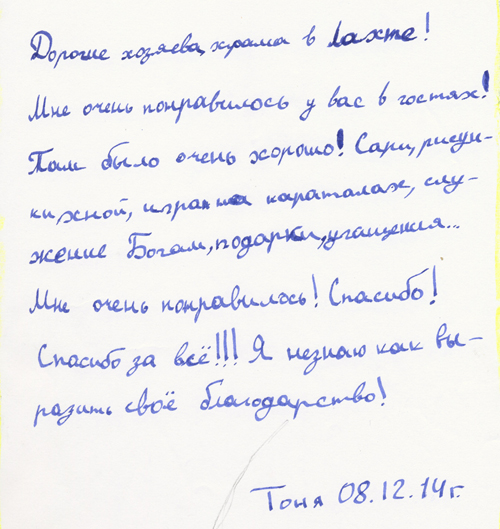 Дорогие хозяева храма в Лахте!
Мне очень понравилось у вас в гостях!
Там было очень хорошо! Сари, рисун-
ки хной, игра на караталах, слу-
жение Богам, подарки, угащения...
Мне очень понравилось! Спасибо!
Спасибо за всё!!! Я незнаю как вы-
разить своё благодарство!
Тоня 08.12.14г.